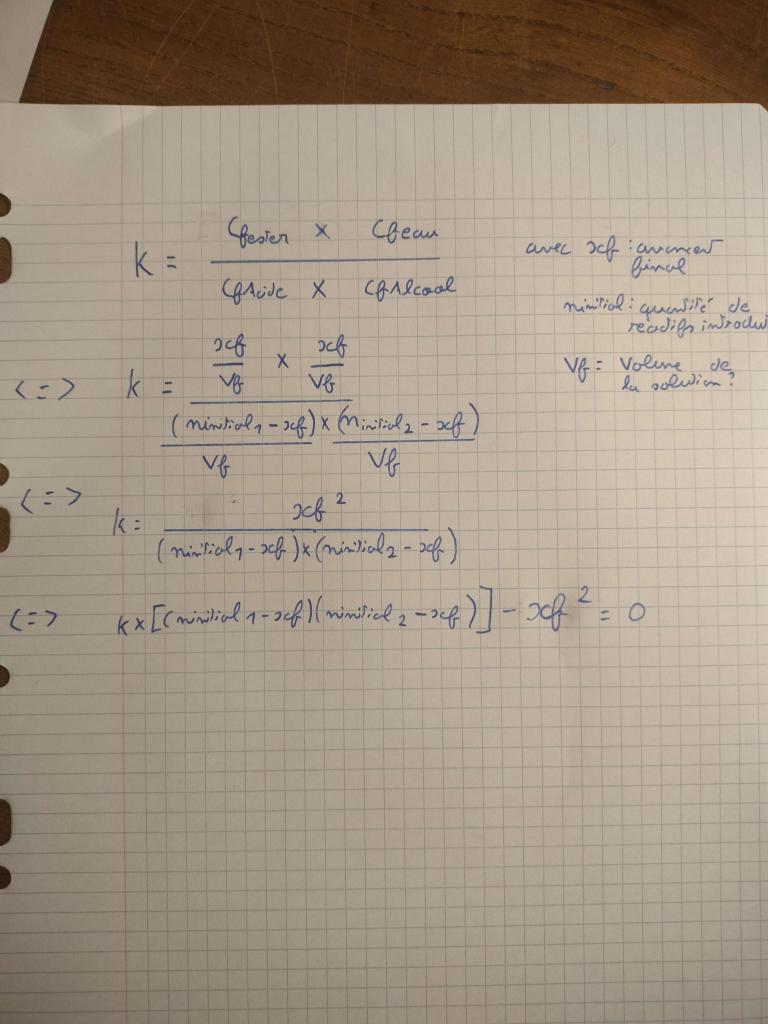 k = (Cfester × Cfeau) / (CfAcide × CfAlcool)
avec xf : avancement final
ninitial : quantité de
réactifs introdui
Vf = Volume de
la solution ?
<=> k = (xf/Vf × xf/Vf) / ((ninitial1 - xf)/Vf × (ninitial2 - xf)/Vf)
<=> k = xf² / ((ninitial1 - xf) × (ninitial2 - xf))
<=> k × [(ninitial1 - xf)(ninitial2 - xf)] - xf² = 0